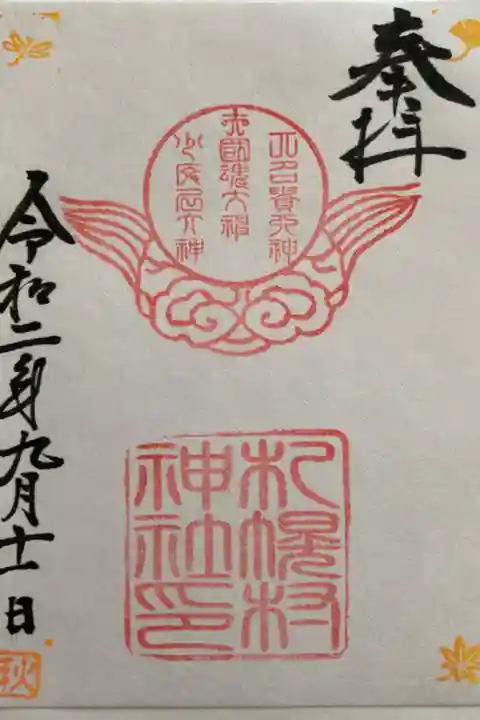 奉拝
大己貴大神
大國魂大神
少彦名大神
札幌村
神社印
令和二年九月十一日
秋